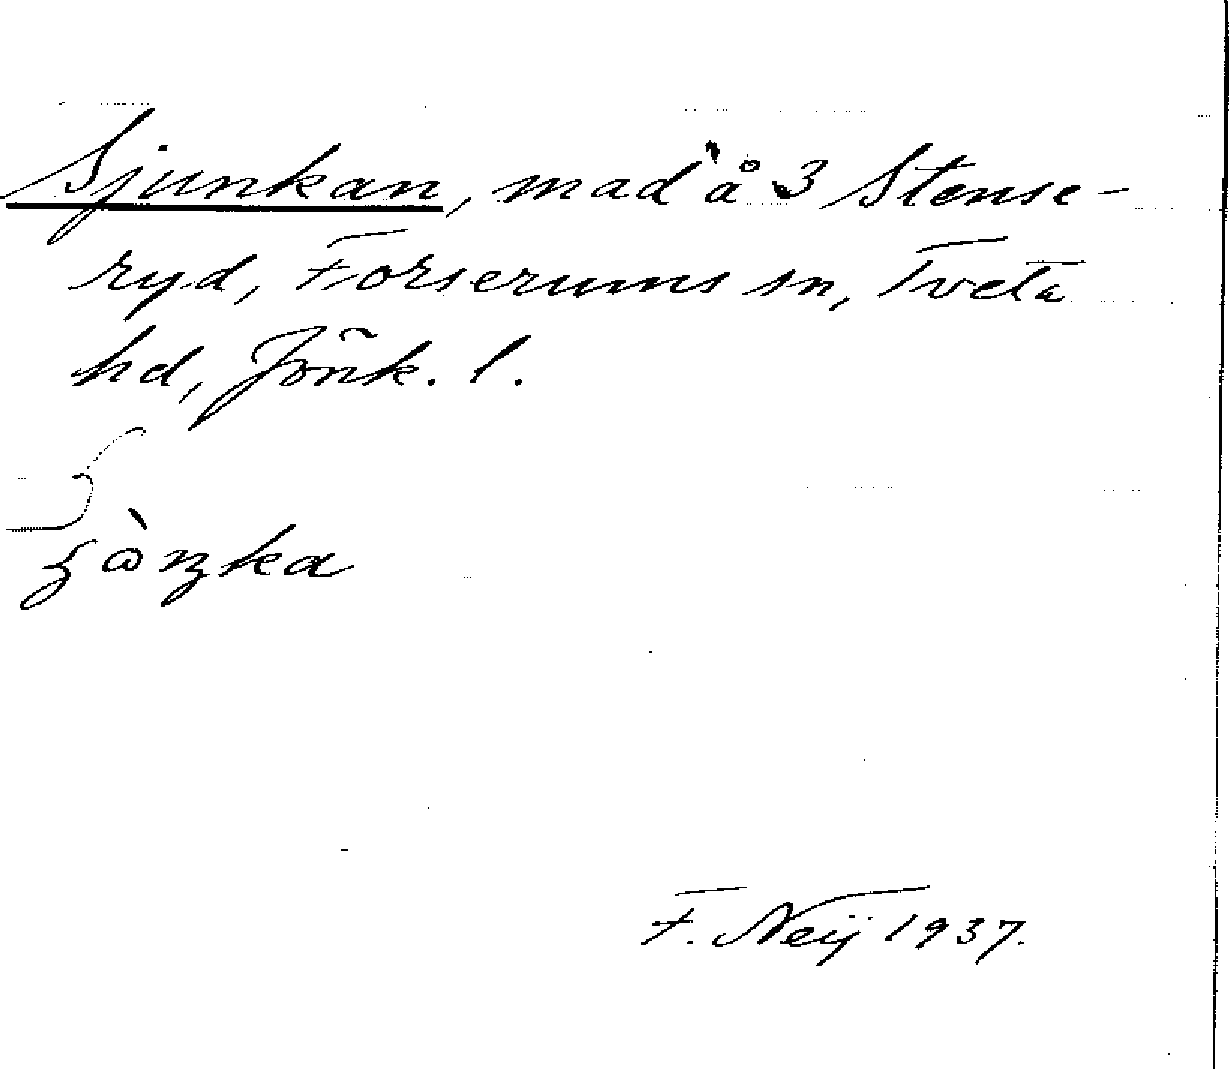 Sjunkan, mad å 3 Stense-
ryd, Forserums sn, Tveta
hd, Jönk. l.
F. Neij 1937.